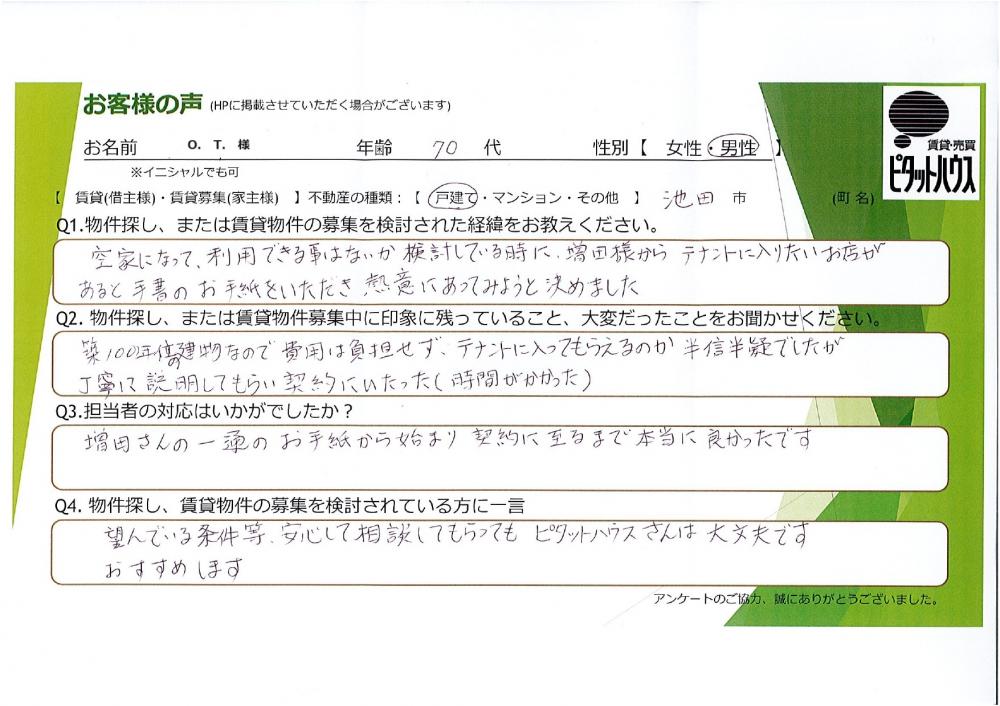 お客様の声 (HPに掲載させていただく場合がございます)
賃貸・売買
ピタットハウス
お名前 O. T. 様 年齢 70 代 性別【 女性・男性 】
※イニシャルでも可
【 賃貸(借主様)・賃貸募集(家主様) 】不動産の種類：【 戸建て・マンション・その他 】 池田 市 (町名)
Q1.物件探し、または賃貸物件の募集を検討された経緯をお教えください。
空家になって、利用できる事はないか検討している時に、増田様から テナントに入りたいお店が
あると手書の お手紙をいただき 熱意にあってみようと決めました
Q2. 物件探し、または賃貸物件募集中に印象に残っていること、大変だったことをお聞かせください。
築100年位の建物なので 費用は負担せず、テナントに入ってもらえるのか 半信半疑でしたが
丁寧に 説明してもらい 契約にいたった(時間がかかった)
Q3.担当者の対応はいかがでしたか？
増田さんの 一通の お手紙から始まり 契約に至るまで 本当に 良かったです
Q4. 物件探し、賃貸物件の募集を検討されている方に一言
望んでいる条件等、安心して相談してもらっても ピタットハウスさんは 大丈夫です
おすすめします
アンケートのご協力、誠にありがとうございました。